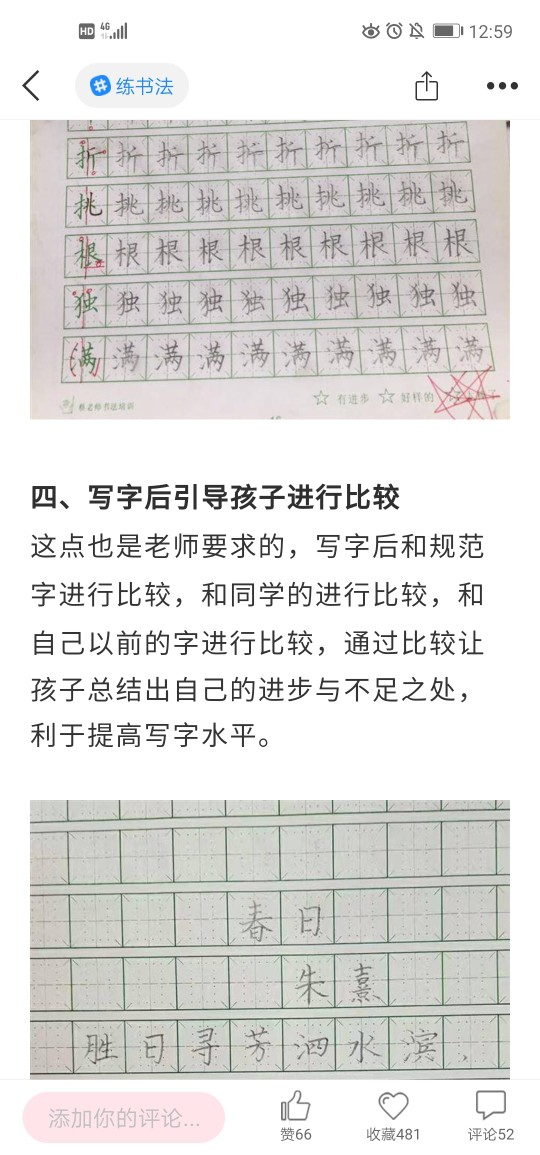 HD 4G 12:59
练书法
折折折折折折折折折折
挑挑挑挑挑挑挑挑挑挑
根根根根根根根根根根
独独独独独独独独独独
满满满满满满满满满满
有进步 好样的
四、写字后引导孩子进行比较
这点也是老师要求的，写字后和规范
字进行比较，和同学的进行比较，和
自己以前的字进行比较，通过比较让
孩子总结出自己的进步与不足之处，
利于提高写字水平。
春日
朱熹
胜日寻芳泗水滨，
添加你的评论... 赞66 收藏481 评论52